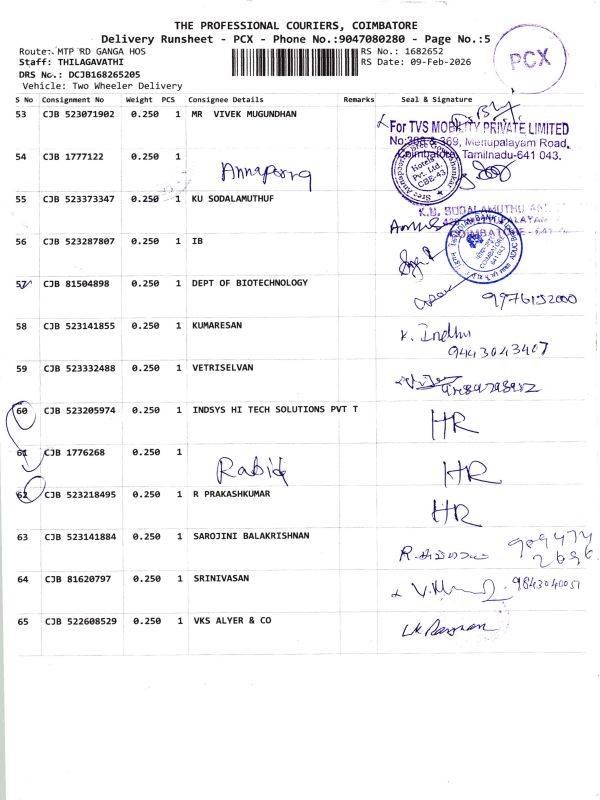 THE PROFESSIONAL COURIERS, COIMBATORE
Delivery Runsheet - PCX - Phone No.:9047080280 - Page No.:5
Route: MTP RD GANGA HOS
RS No.: 1682652
Staff: THILAGAVATHI
RS Date: 09-Feb-2026
DRS No.: DCJB168265205
Vehicle: Two Wheeler Delivery
PCX
S No Consignment No Weight PCS Consignee Details Remarks Seal & Signature
53 CJB 523071902 0.250 1 MR VIVEK MUGUNDHAN
For TVS MOBILITY PRIVATE LIMITED
No:368 & 369, Mettupalayam Road,
Coimbatore, Tamilnadu-641 043.
54 CJB 1777122 0.250 1
Annapoorna
Hotels Pvt. Ltd. CBE-43
55 CJB 523373347 0.250 1 KU SODALAMUTHUF
K.U. SODALAMUTHU AND
COIMBATORE - 641
56 CJB 523287807 0.250 1 IB
COIMBATORE 641043
57 CJB 81504898 0.250 1 DEPT OF BIOTECHNOLOGY
9976132000
58 CJB 523141855 0.250 1 KUMARESAN
K. Indhu
9443043407
59 CJB 523332488 0.250 1 VETRISELVAN
60 CJB 523205974 0.250 1 INDSYS HI TECH SOLUTIONS PVT T
HR
61 CJB 1776268 0.250 1
Rabid HR
62 CJB 523218495 0.250 1 R PRAKASHKUMAR
HR
63 CJB 523141884 0.250 1 SAROJINI BALAKRISHNAN
64 CJB 81620797 0.250 1 SRINIVASAN
9843040051
65 CJB 522608529 0.250 1 VKS ALYER & CO